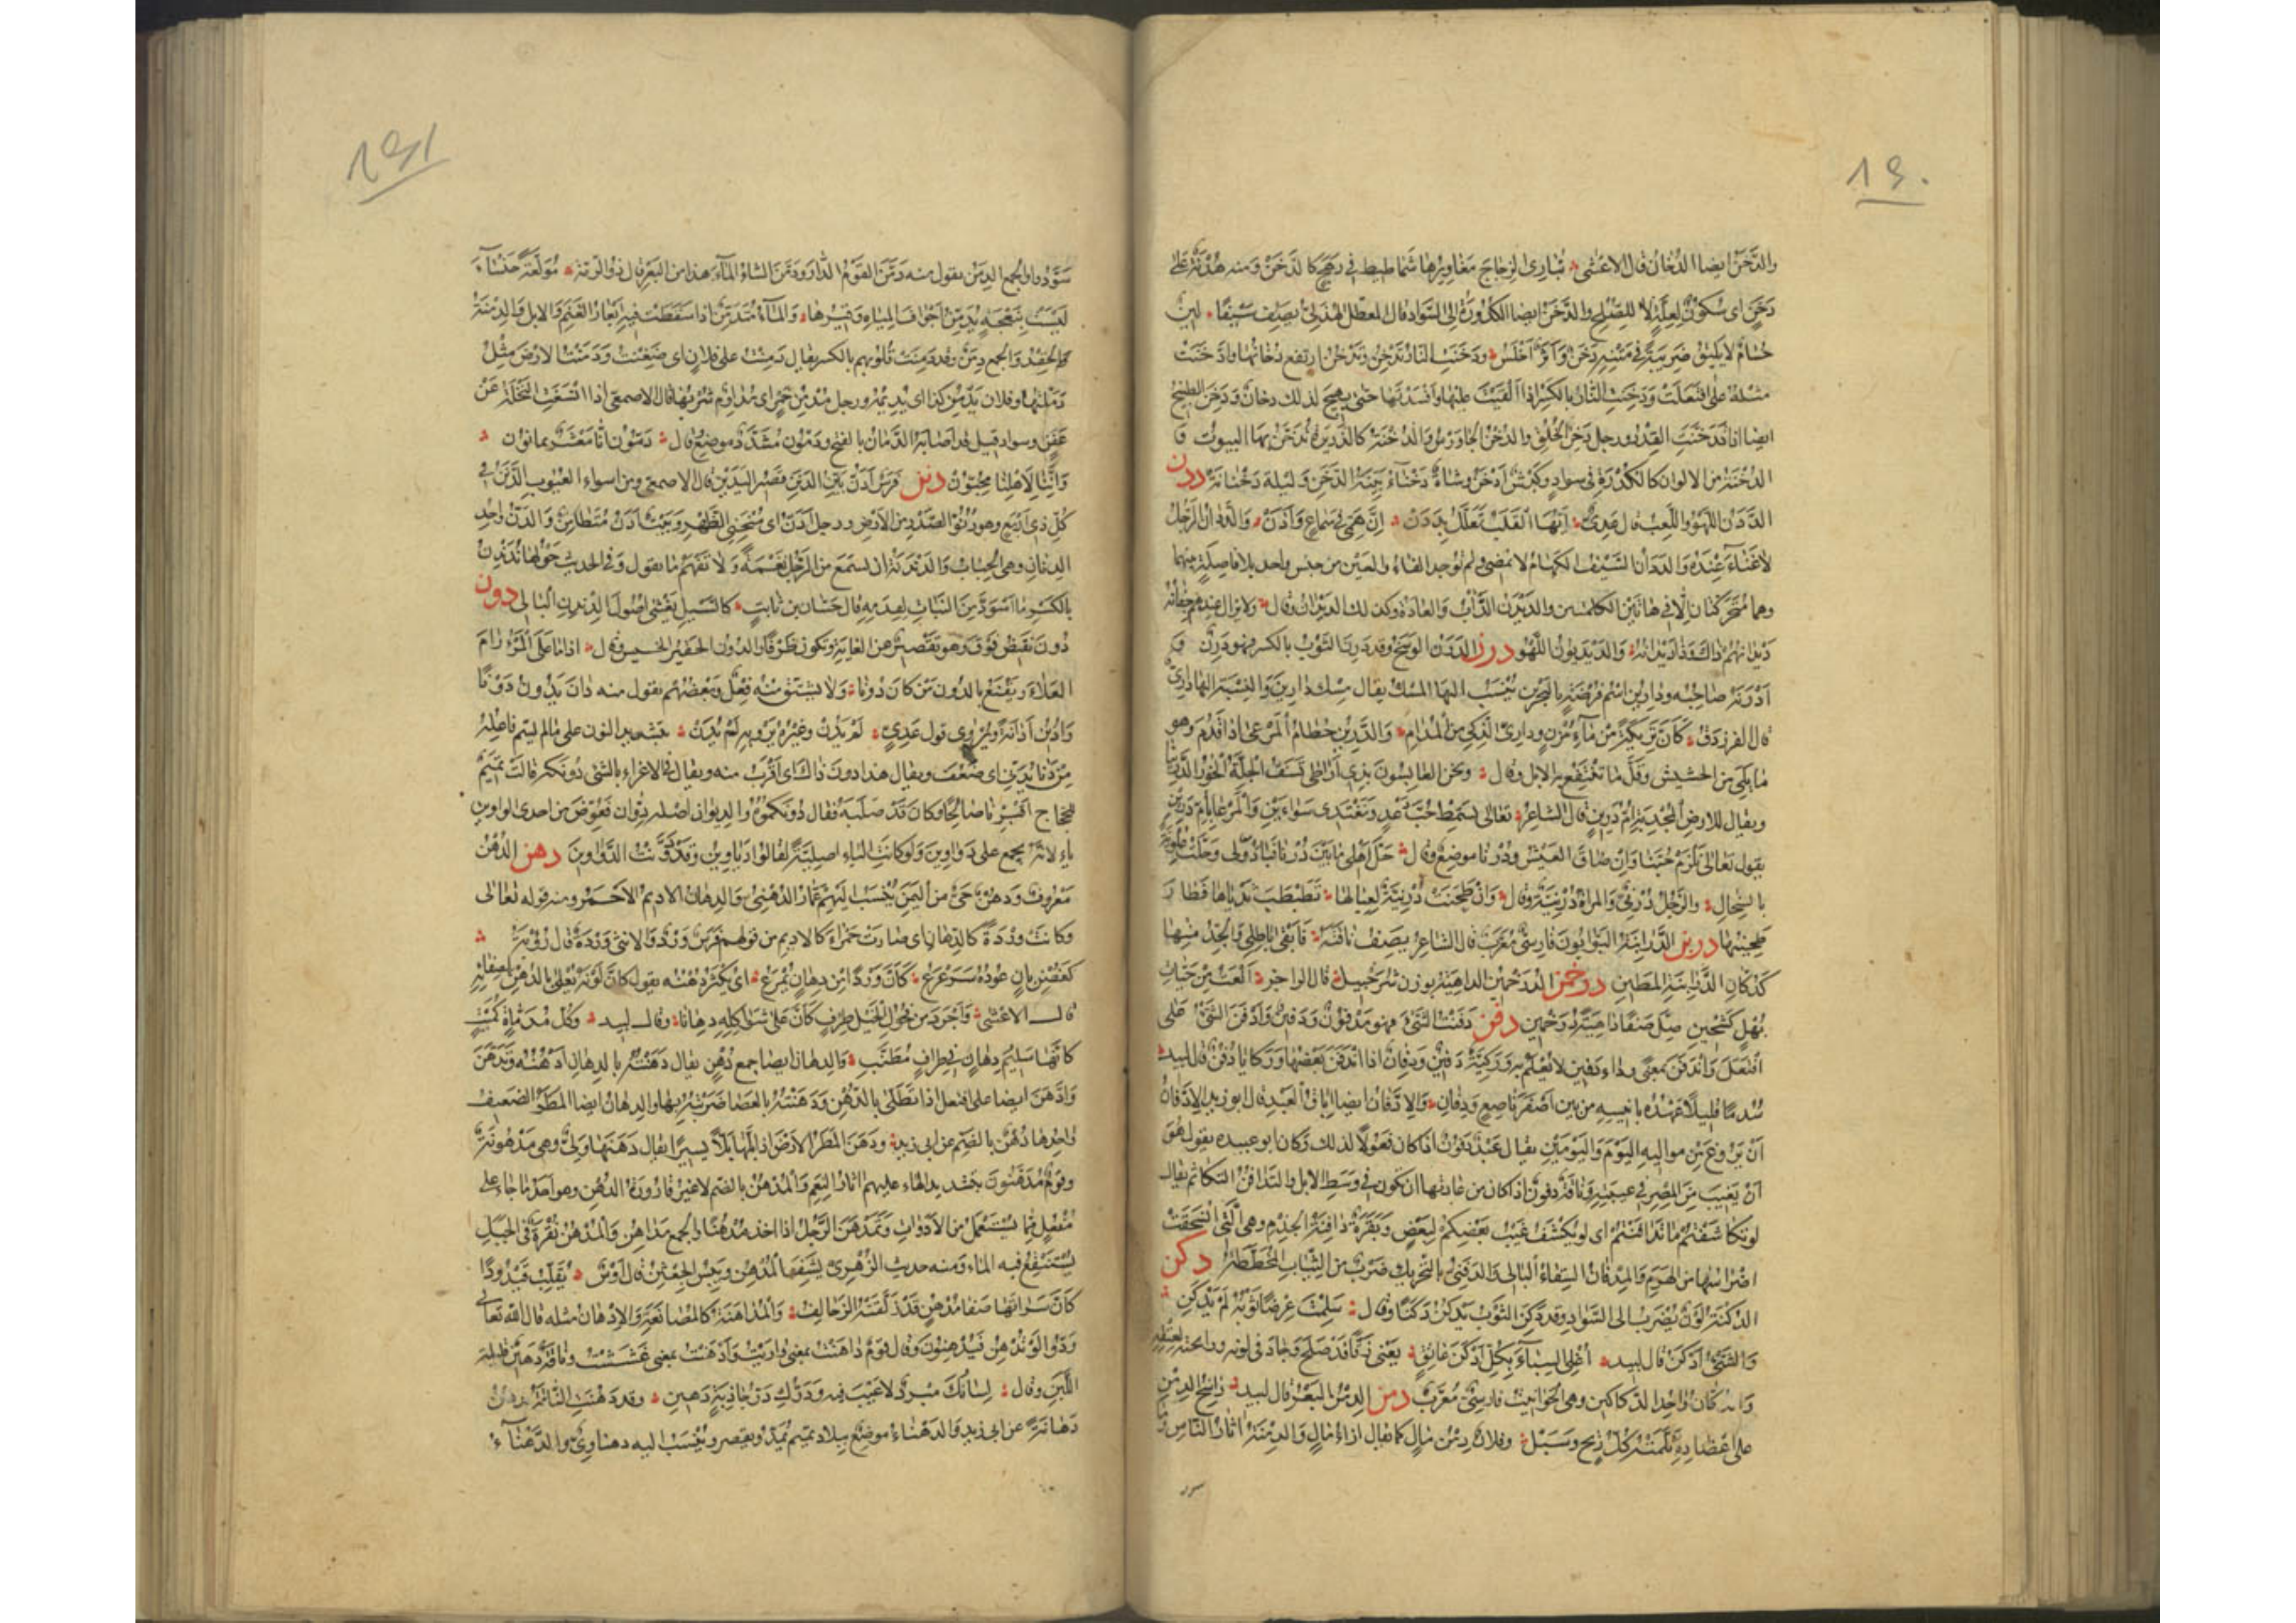 ١٩٠
والدَّخَنُ ايضا الدُّخَانُ قال الاعشى تُبَارِى الزِّجَاجَ مَغَاوِيرُها شَمَاطِيطُ فى رَهَجٍ كالدَّخَنْ ومنه هُدْنَةٌ على
دَخَنٍ اى سُكُونٌ لِعِلَّةٍ لا لِلصُّلْحِ والدَّخَنُ ايضا الكُدُورَةُ الى السَّوَادِ قال المعطّل الهُذَلِىُّ يَصِفُ سَيْفًا لَيْنٌ
حُسَامٌ لا يُلِيقُ ضَرِيبَةً فى مَتْنِهِ دَخَنٌ وَأَثْرٌ أَحْلَسُ ودَخَنَتِ النارُ تَدْخُنُ وتَدْخِنُ ارتفع دُخَانُها وادَّخَنَتْ
مثلهُ على افْتَعَلَتْ ودَخِنَتِ النَّارُ بالكَسْرِ اذا أَلْقَيْتَ عليها وأَفْسَدْتَها حَتَّى يَهِيجَ لذلك دخانٌ ودَخِنَ الطَّبِيخُ
ايضا اذا تَدَخَّنَتِ القِدْرُ ورجل دَخِنُ الخُلُقِ والدُّخْنُ الجَاوَرْسُ والدُّخْنَةُ كالذَّرِيرَةِ تُدَخَّنُ بها البيوتُ وَ
الدُّخْنَةُ من الالوانِ كالكُدْرَةِ فى سوادٍ وكَبْشٌ أَدْخَنُ وشاةٌ دَخْنَاءُ بَيِّنَةُ الدَّخَنِ ولَيْلَةٌ دَخْنَانَةٌ ددن
الدَّدَنُ اللَّهْوُ واللَّعِبُ قال عَدِىٌّ أَيُّهَا القَلْبُ تَعَلَّلْ بِدَدَنْ إِنَّ هَمِّى فى سَمَاعٍ وَأَذَنْ والدَّدَانُ الرَّجُلُ
لا غَنَاءَ عِنْدَهُ والدَدَانُ السَّيْفُ الكَهَامُ لا يَمْضِى ولم تُوجد الفاءُ والعَيْنُ من جنس واحد بلا فاصِلَةٍ بينهما
وهما مُتَحَرِّكَتَانِ إِلَّا فى هَاتَيْنِ الكلمتين والدَّيْدَنُ الدَّأْبُ والعَادَةُ وكذلك الدَّيْدَانُ وقال ولا يزال عندهم حَفَّانُهُ
دَيْدَانُهُمْ ذاكَ وَذَا دَيْدَانُهُ والدَّيْدَبُونُ اللَّهْوُ درن الدَّرَنُ الوَسَخُ وقد دَرِنَ الثَّوْبُ بالكسر فهو دَرِنٌ وَ
أَدْرَنَهُ صاحِبُه ودَارِينُ اسْمُ فُرْضَةٍ بالبَحْرَيْنِ يُنْسَبُ اليها المسْكُ يقال مِسْكُ دَارِينَ والنِّسْبَةُ اليها دَارِىٌّ
قال الفرزدق كَأَنَّ تَرِيكَةً مِنْ مَاءِ مُزْنٍ ودارِىَّ الذَّكِىِّ مِنَ المُدَامِ والدَّرِينُ حُطَامُ المَرْعَى اذا قَدُمَ وهو
مَا بَلِىَ من الحشيش وقَلَّ ما تَنْتَفِعُ به الابل وقال ونحن الحابِسُونَ بِذِى أُرَاطَى تَسَفُّ الجِلَّةُ الخُورُ الدَّرِينَا
ويقال للارضِ المُجْدِبَةِ أُمُّ دَرِينٍ قال الشاعِرُ تعالَىْ نُسَمِّطْ حُبَّ دَعْدٍ ونَغْتَدِى سَوَاءَيْنِ والمَرْعَى بِأُمِّ دَرِينِ
يقول تعالَىْ نَلْزَمْ حُبَّنَا وَإِنْ ضَاقَ العَيْشُ ودُرْنَا موضِعٌ وقال حَلَّ أَهْلِى مَا بَيْنَ دُرْنَا فَبَادَوْلَى وحَلَّتْ عُلْوِيَّةً
بالسِّخَالِ والرَّجُلُ دُرْنِىٌّ والمرأةُ دُرْنِيَّةٌ وقال وَإِنْ طَحَنَتْ دُرْنِيَّةٌ لِعِيَالِها تَطَبْطَبَ ثَدْيَاهَا فَطَارَ
طَحِينُها دربن الدَّرَابِنَةُ البَوَّابُونَ فارسىٌّ مُعَرَّبٌ قال الشاعِرُ يصف نَاقَتَهُ فأَبْقَى بَاطِلِى والجِدُّ منها
كَدُكَّانِ الدَّرَابِنَةِ المَطِينِ درخمن الدُّرَخْمِينُ الداهِيَةُ بوزن شُرَحْبِيلٍ قال الراجز أَنْعَتُ مِنْ حَيَّاتِ
بُهْلٍ كَشِحِينْ صِلَّ صَفًا دَاهِيَةً دُرَخْمِينْ دفن دَفَنْتُ الشَّىءَ فهو مَدْفُونٌ ودَفِينٌ وادَّفَنَ الشَّىءُ على
افْتَعَلَ وانْدَفَنَ بمعنًى وداء دَفِينٌ لا يُعْلَمُ به ورَكِيَّةٌ دَفِينٌ ودِفَانٌ اذا انْدَفَنَ بَعْضُها ورَكَايَا دُفُنٌ قال لبيد
سُدُمًا قَلِيلًا عَهْدُهُ بأَنِيسِهِ مِنْ بَيْنِ أَصْفَرَ نَاصِعٍ ودِفَانِ والادِّفَانُ ايضا إِبَاقُ العَبْدِ قال ابو زيد الادِّفَانُ
أَنْ يَرُوغَ مِنْ مواليهِ اليَوْمَ واليَوْمَيْنِ يقال عَبْدٌ دَفُونٌ اذا كان فَعُولًا لذلك وكان ابو عبيده يقول هُوَ
أَنْ يَغِيبَ مِنَ المِصْرِ فى غيبته ونَاقَةٌ دَفُونٌ اذا كان من عادتها ان تكون فى وَسَطِ الابل والتَّدَافُنُ التَّكَاتُمُ يقال
لو تَكَاشَفْتُمْ مَا تَدَافَنْتُمْ اى لو يُكْشَفُ عَيْبُ بَعْضِكُمْ لِبَعْضٍ وبَقَرَةٌ دَافِنَةُ الجِذْمِ وهى الَّتى انْسَحَقَتْ
أضْراسُها من الهَرَمِ والمِدْفَانُ السِّقَاءُ البالِى والدَّفَنِىُّ بالتَّحْرِيكِ ضَرْبٌ من الثِّيَابِ المُخَطَّطَةِ دكن
الدُّكْنَةُ لَوْنٌ يُضْرَبُ الى السَّوادِ وقد دَكِنَ الثَّوْبُ يَدْكَنُ دَكَنًا وقال سَلِمْتَ عِرْضًا ثَوْبُهُ لَمْ يَدْكَنِ
والشَّىءُ أَدْكَنُ قال لبيد أُغْلِى السِّبَاءَ بِكُلِّ أَدْكَنَ عَاتِقٍ يَعْنِى زِقًّا قَدْ صَلُحَ وجَادَ فى لونه ورائحته لِعِتْقِهِ
والدُّكَّانُ وَاحِدُ الدَّكاكين وهى الحَوَانِيتُ فارسىٌّ مُعَرَّبٌ دمن الدِّمْنُ البَعَرُ قال لبيد رَاسِخُ الدِّمْنِ
على أَعْضَادِهِ ثَلَمَتْهُ كُلُّ رِيحٍ وسَبَلْ وفلانٌ دِمْنُ مَالٍ كما يقال ازاءُ مَالٍ والدِّمْنَةُ اثَارُ النَّاسِ وما
١٩١
سَوَّدُوا والجمع الدِّمَنُ يقول منه دَمَّنَ القَوْمُ الدَّارَ ودَمَّنَ الشاءُ المَاءَ هذا من البَعَرِ قال ذو الرمّة مُوَلَّعَةً خَنْسَاءَ
لَيْسَتْ بِنَعْجَةٍ يُدَمِّنُ أَجْوَافَ المِيَاهِ وَقِيرُها والمَاءُ مُتَدَمِّنٌ اذا سَقَطَتْ فيه أَبْعَارُ الغَنَمِ والابل والدِّمْنَةُ
الحِقْدُ والجمع دِمَنٌ وقد دَمِنَتْ قُلُوبُهم بالكسر يقال دَمِنْتُ على فلانٍ اى ضَغِنْتُ ودَمَنْتُ الارضَ مِثْلُ
دَمَلْتُها وفلان يُدْمِنُ كذا اى يُدِيمُهُ ورجل مُدْمِنُ خَمْرٍ اى مُدَاوِمُ شُرْبِها قال الاصمعى اذا انْسَغَتِ النَّخْلَةُ عَنْ
عَفَنٍ وسوادٍ قيل قد أَصَابَهُ الدَّمَانُ بالفتح ودَمُّونُ مُشَدَّدٌ موضِعٌ قال دَمُّونُ انَّا مَعْشَرٌ يمانون
وإِنَّنَا لأَهْلِنَا مُحِبُّونْ دنن فَرَسٌ أَدَنُّ بَيِّنُ الدَّنَنِ قَصِيرُ اليَدَيْنِ قال الاصمعى ومن اسواء العُيُوبِ الدَّنَنُ فى
كُلِّ ذى أَرْبَعٍ وهو دُنُوُّ الصَّدْرِ من الارضِ ورجل أَدَنُّ اى مُنْحَنِى الظَّهْرِ وبَيْتٌ أَدَنُّ مُتَطَامِنٌ والدَّنُّ واحِدُ
الدِنَانِ وهى الحِبَابُ والدَّنْدَنَةُ ان تسمَعَ من الرَّجُلِ نَغْمَةً ولا تَفْهَمَ ما يقول وفى الحديث حَوْلَهَا نُدَنْدِنُ
بالكَسْرِ ما اسْوَدَّ مِنَ النَّبَاتِ لِقِدَمِهِ قال حَسَّان بن ثابت كالسَّيْلِ يَغْشَى أُصُولَ الدِّنْدِنِ البَالِى دون
دُونَ نَقِيضُ فَوْقَ وهو تَقْصِيرٌ عن الغايَةِ ويكون ظَرْفًا والدُّونُ الحَقِيرُ الخسيس وقال اذا مَا عَلَا المَرْءُ رَامَ
العَلَاءَ ويَقْنَعُ بالدُّونِ مَنْ كَانَ دُونَا ولا يشتقّ منه فِعْلٌ وبَعْضُهُم يقول منه دَانَ يَدُونُ دَوْنًا
وأُدِينَ إِدَانَةً ويُرْوَى قول عَدِىٍّ لَمْ يُدَنْ وغَيْرُهُ يَرْوِيهِ لَمْ يُدَنَّ بتشديد النون على مالم يُسَمَّ فاعِلُهُ
مِنْ دَنَّى يُدَنِّى اى ضَعُفَ ويقال هذا دون ذاك اى أَقْرَبُ منه ويقال فى الاغراءِ بالشىء دُونَكَهُ قالَتْ تَمِيمٌ
للحجّاج أَقْبِرْنَا صالِحًا وكان قَدْ صَلَبَهُ فقال دُونَكُمُوهُ والدِيوانُ اصله دِوَّان فعُوِّضَ من احدى الواوين
ياءٌ لانّهُ يجمع على دَوَاوِينَ ولو كانَتِ الياء اصلِيَّةً لقالوا دَيَاوِينُ وقد دُوِّنَتِ الدَّوَاوِينُ دهن الدُّهْنُ
مَعْرُوفٌ ودُهْنٌ حَىٌّ من اليَمَنِ يُنْسَبُ إِلَيْهِمْ عَمَّارٌ الدُّهْنِىُّ والدِهَانُ الاديمُ الاحْمَرُ ومنه قوله تعالى
وكانَتْ وَرْدَةً كالدِّهَانِ اى صارَتْ حَمْرَاءَ كالاديمِ من قولهم فَرَسٌ وَرْدٌ والانثى وَرْدَةٌ قال رؤبة
كغُصْنِ بَانٍ عُودُهُ سَرَعْرَعُ كَأَنَّ وَرْدًا مِنْ دِهَانٍ يُمْرَعُ اى يَكْثُرُ دُهْنُهُ يقول كأَنَّ لَوْنَهُ يُعْلَى بالدُّهْنِ لِصَفَائِهِ
قال الاعشى وأَجْرَدَ من فُحُولِ الخَيْلِ طِرْفٍ كَأَنَّ على شَوَاكِلِهِ دِهَانَا وقال لبيد وكُلُّ مُدَمَّاةٍ كُمَيْتٍ
كأَنَّهَا سَلِيمُ دِهَانٍ فى طِرَافٍ مُطَنَّبِ والدهان ايضا جمع دُهْنٍ يقال دَهَنْتُهُ بالدِهَانِ أَدْهُنُهُ وتَدَهَّنَ
وادَّهَنَ ايضا على افتعل اذا تَطَلَّى بالدُّهْنِ ودَهَنْتُهُ بالعَصَا ضَرَبْتُهُ بها والدِهَانُ ايضا المَطَرُ الضعيفُ
وَاحِدُها دُهْنٌ بالضمّ عن ابى زيدٍ ودَهَنَ المَطَرُ الارْضَ اذا بَلَّها بَلًّا يسيرًا يقال دَهَنَها وَلْىٌ وهى مَدْهُونَةٌ
وقَوْمٌ مُدَهَّنُونَ بتشديد الهاء عليهم اثَارُ النِعَمِ والمُدْهُنُ بالضم لا غير قَارُورَةُ الدُّهْنِ وهو أَحَدُ مَا جاءَ على
مُفْعُلٍ ممَّا يُسْتَعْمَلُ من الادواتِ وتَمَدْهَنَ الرَّجُلُ اذا اخذ مُدْهُنًا والجمع مَدَاهِنُ والمُدْهُنُ نُقْرَةٌ فى الجَبَلِ
يُسْتَنْقَعُ فيه الماءُ ومنه حديث الزُّهْرِىِّ نَشِفَ المُدْهُنُ ويَبِسَ الجِعْثِنُ قال أَوْسٌ يُقَلِّبُ قَيْدُودًا
كَأَنَّ سَرَاتَهَا صَفَا مُدْهُنٍ قَدْ زَلَّقَتْهُ الزَّحَالِفُ والمُدَاهَنَةُ كالمُصَانَعَةِ والادْهَانُ مثله قال الله تعالى
وَدُّوا لَوْ تُدْهِنُ فَيُدْهِنُونَ وقال قومٌ دَاهَنْتُ بمعنى وَارَيْتُ وأَدْهَنْتُ بمعنى غَشَشْتُ ونَاقَةٌ دَهِينٌ قليلة
اللَّبَنِ وقال لِسَانُكَ مِبْرَدٌ لا عَيْبَ فيه ودَرُّكَ دَرُّ جَاذِبَةٍ دَهِينِ وقد دَهَنَتِ النَّاقَةُ تَدْهُنُ
دَهَانَةً عن ابى زيد والدَّهْنَاءُ موضعٌ ببلاد تميم يُمَدُّ ويقصر ويُنْسَبُ اليه دهناوِىٌّ والدَّهْنَاءُ